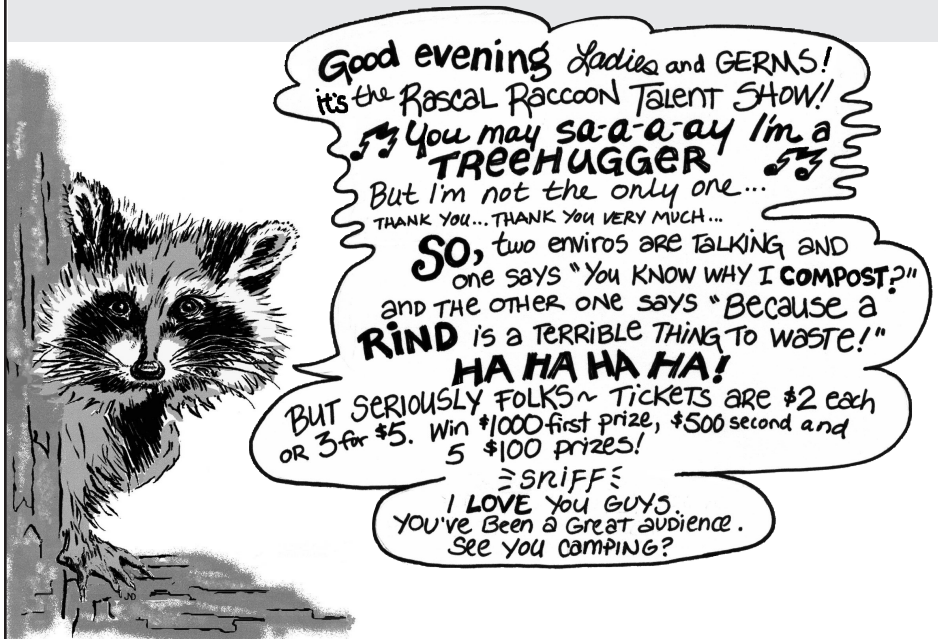 Good evening Ladies and GERMS!
it's the RASCAL RACCOON TALENT SHOW!
You may sa-a-a-ay I'm a
TREEHUGGER
But I'm not the only one...
THANK YOU... THANK YOU VERY MUCH...
SO, two enviros are TALKING AND
one says "YOU KNOW WHY I COMPOST?"
and THE OTHER ONE SAYS "BECAUSE a
RIND IS A TERRIBLE THING TO WASTE!"
HA HA HA HA!
BUT SERIOUSLY FOLKS~ TICKETS ARE $2 each
OR 3 for $5. Win $1000 first prize, $500 second and
5 $100 prizes!
SNIFF
I LOVE YOU GUYS.
YOU'VE BEEN a GREAT audience.
SEE YOU CAMPING?